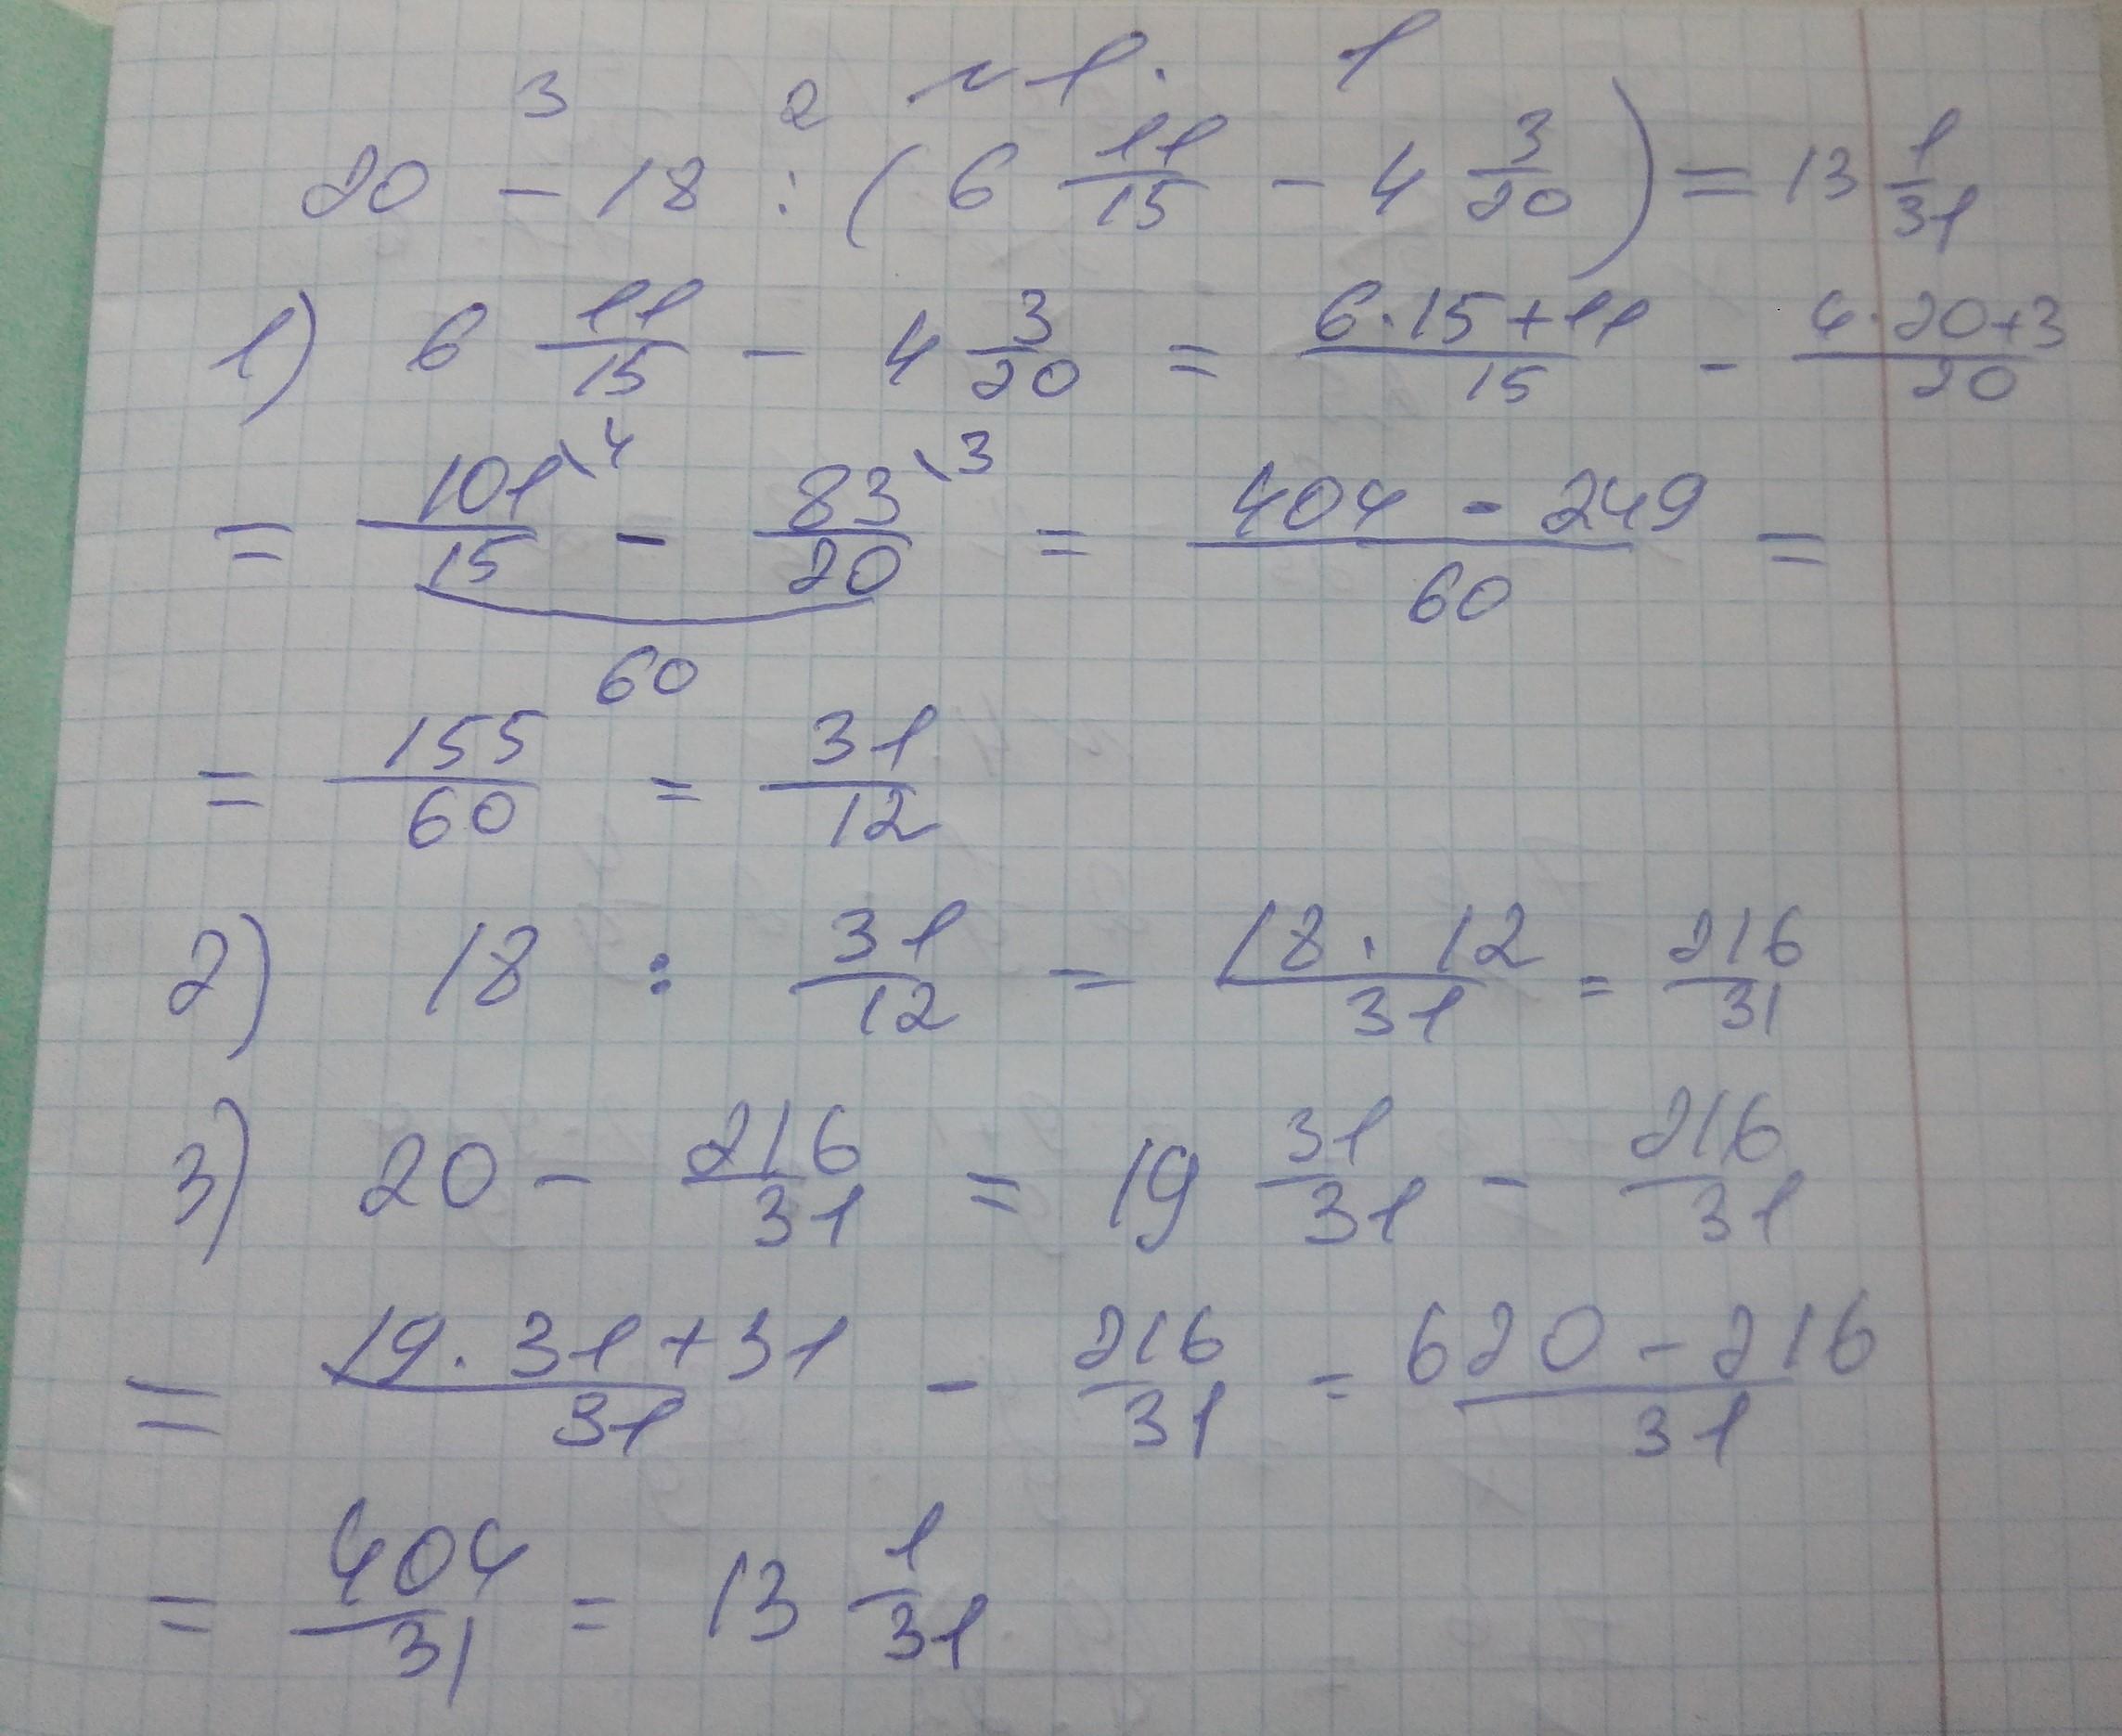 №1.
3 2 1
20 - 18 : (6 11/15 - 4 3/20) = 13 1/31
1) 6 11/15 - 4 3/20 = (6·15+11)/15 - (4·20+3)/20
= 101\4/15 - 83\3/20 = (404 - 249)/60 =
60
= 155/60 = 31/12
2) 18 : 31/12 = (18 · 12)/31 = 216/31
3) 20 - 216/31 = 19 31/31 - 216/31
= (19·31+31)/31 - 216/31 = (620 - 216)/31
= 404/31 = 13 1/31